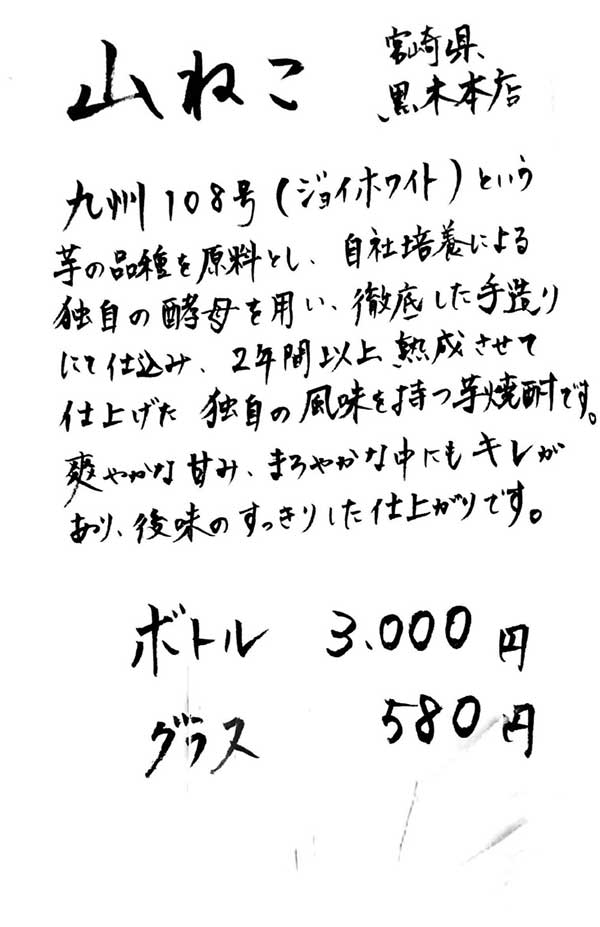 山ねこ
宮崎県、
黒木本店
九州108号(ジョイホワイト)という
芋の品種を原料とし、自社培養による
独自の酵母を用い、徹底した手造り
にて仕込み、2年間以上熟成させて
仕上げた独自の風味を持つ芋焼酎です。
爽やかな甘み、まろやかな中にもキレが
あり、後味のすっきりした仕上がりです。
ボトル 3.000円
グラス 580円